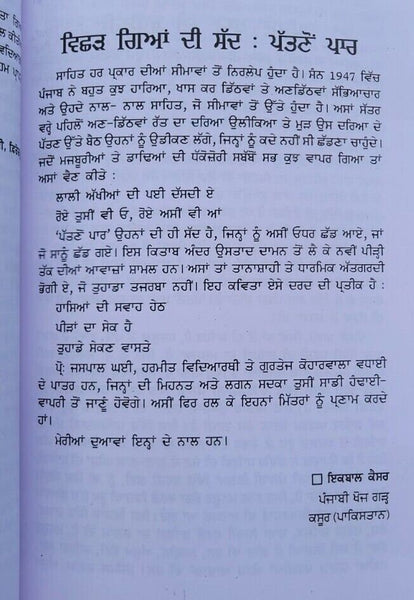 ਵਿਛੜ ਗਿਆਂ ਦੀ ਸੱਦ : ਪੱਤਣੋਂ ਪਾਰ
ਸਾਹਿਤ ਹਰ ਪ੍ਰਕਾਰ ਦੀਆਂ ਸੀਮਾਵਾਂ ਤੋਂ ਨਿਰਲੇਪ ਹੁੰਦਾ ਹੈ। ਸੰਨ 1947 ਵਿੱਚ
ਪੰਜਾਬ ਨੇ ਬਹੁਤ ਕੁਝ ਹਾਰਿਆ, ਖਾਸ ਕਰ ਡਿੱਠਵਾਂ ਤੇ ਅਣਡਿੱਠਵਾਂ ਸੱਭਿਆਚਾਰ
ਅਤੇ ਉਹਦੇ ਨਾਲ- ਨਾਲ ਸਾਹਿਤ, ਜੋ ਸੀਮਾਵਾਂ ਤੋਂ ਉੱਤੇ ਹੁੰਦਾ ਹੈ। ਅਸਾਂ ਸੱਤਰ
ਵਰ੍ਹੇ ਪਹਿਲੋਂ ਅਣ-ਡਿੱਠਵਾਂ ਰੱਤ ਦਾ ਦਰਿਆ ਉਲੀਕਿਆ ਤੇ ਮੁੜ ਉਸ ਦਰਿਆ ਦੇ
ਪੱਤਣ ਉੱਤੇ ਬੈਠ ਉਹਨਾਂ ਨੂੰ ਉਡੀਕਣ ਲੱਗੇ, ਜਿਨ੍ਹਾਂ ਨੂੰ ਕਦੇ ਨਹੀਂ ਸੀ ਛੱਡਣਾ ਚਾਹੁੰਦੇ।
ਜਦੋਂ ਮਜਬੂਰੀਆਂ ਤੇ ਡਾਢਿਆਂ ਦੀ ਧੱਕੇਜ਼ੋਰੀ ਸਬੱਬੋਂ ਸਭ ਕੁਝ ਵਾਪਰ ਗਿਆ ਤਾਂ
ਅਸਾਂ ਵੈਣ ਕੀਤੇ :
ਲਾਲੀ ਅੱਖੀਆਂ ਦੀ ਪਈ ਦੱਸਦੀ ਏ
ਰੋਏ ਤੁਸੀਂ ਵੀ ਓ, ਰੋਏ ਅਸੀਂ ਵੀ ਆਂ
'ਪੱਤਣੋਂ ਪਾਰ' ਉਹਨਾਂ ਦੀ ਹੀ ਸੱਦ ਹੈ, ਜਿਨ੍ਹਾਂ ਨੂੰ ਅਸੀਂ ਓਧਰ ਛੱਡ ਆਏ, ਜਾਂ
ਜੋ ਸਾਨੂੰ ਛੱਡ ਗਏ। ਇਸ ਕਿਤਾਬ ਅੰਦਰ ਉਸਤਾਦ ਦਾਮਨ ਤੋਂ ਲੈ ਕੇ ਨਵੀਂ ਪੀੜ੍ਹੀ
ਤੱਕ ਦੀਆਂ ਆਵਾਜ਼ਾਂ ਸ਼ਾਮਲ ਹਨ। ਅਸਾਂ ਤਾਂ ਤਾਨਾਸ਼ਾਹੀ ਤੇ ਧਾਰਮਿਕ ਅੱਤਗਰਦੀ
ਭੋਗੀ ਏ, ਜੋ ਤੁਹਾਡਾ ਤਜਰਬਾ ਨਹੀਂ। ਇਹ ਕਵਿਤਾ ਏਸੇ ਦਰਦ ਦੀ ਪ੍ਰਤੀਕ ਹੈ :
ਹਾਸਿਆਂ ਦੀ ਸਵਾਹ ਹੇਠ
ਪੀੜਾਂ ਦਾ ਸੇਕ ਹੈ
ਤੁਹਾਡੇ ਸੇਕਣ ਵਾਸਤੇ
ਪ੍ਰੋ: ਜਸਪਾਲ ਘਈ, ਹਰਮੀਤ ਵਿਦਿਆਰਥੀ ਤੇ ਗੁਰਤੇਜ ਕੋਹਾਰਵਾਲਾ ਵਧਾਈ
ਦੇ ਪਾਤਰ ਹਨ, ਜਿਨ੍ਹਾਂ ਦੀ ਮਿਹਨਤ ਅਤੇ ਲਗਨ ਸਦਕਾ ਤੁਸੀਂ ਸਾਡੀ ਹੰਢਾਈ-
ਵਾਪਰੀ ਤੋਂ ਜਾਣੂੰ ਹੋਵੋਗੇ। ਅਸੀਂ ਫਿਰ ਰਲ ਕੇ ਇਹਨਾਂ ਮਿੱਤਰਾਂ ਨੂੰ ਪ੍ਰਣਾਮ ਕਰਦੇ
ਹਾਂ।
ਮੇਰੀਆਂ ਦੁਆਵਾਂ ਇਨ੍ਹਾਂ ਦੇ ਨਾਲ ਹਨ।
□ ਇਕਬਾਲ ਕੈਸਰ
ਪੰਜਾਬੀ ਖੋਜ ਗੜ੍ਹ
ਕਸੂਰ (ਪਾਕਿਸਤਾਨ)